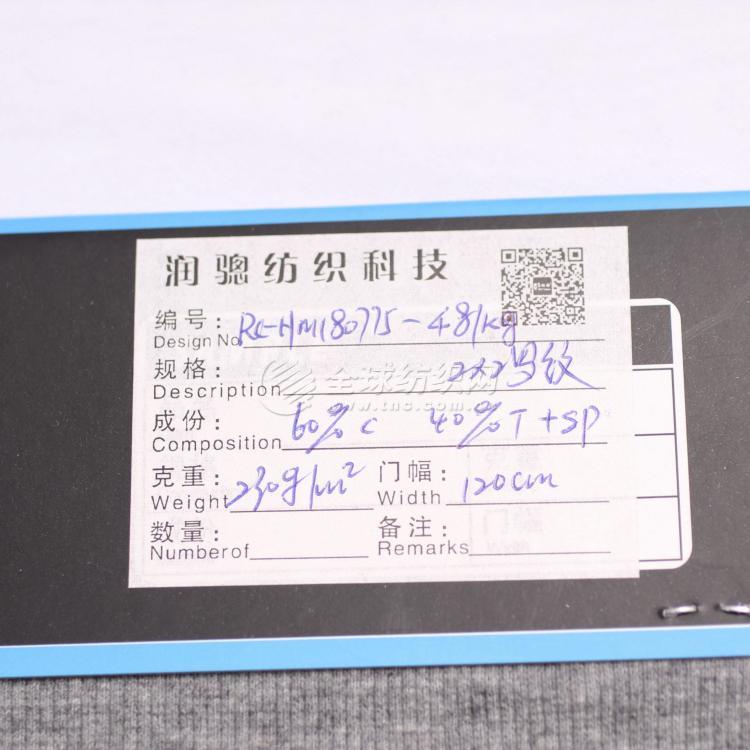 润骢纺织科技
编号: RC-HM180775-48/kg
Design No
规格: 2×2罗纹
Description
全球纺织网
www.tnc.com.cn
成份: 60%C 40%T+SP
Composition
克重: 230g/m² 门幅: 120cm
Weight Width
数量: 备注:
Numberof Remarks